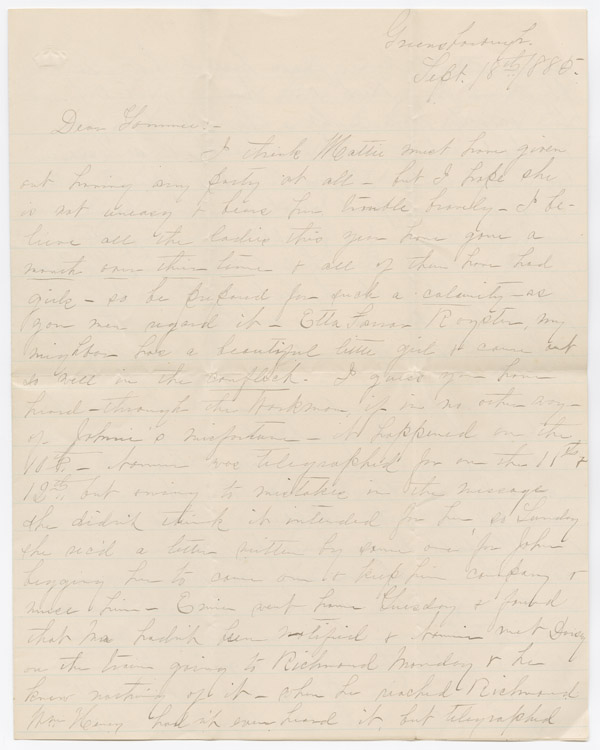 Greensborough.
Sept. 18th 1885.
Dear
I think Mattie must have given
out having any party at all - but I hope she
is not uneasy & bears her trouble bravely - I be-
lieve all the ladies this year have gone a
month over their time & all of them have had
girls - so be prepared for such a calamity - as
you men regard it - Etta Royster, my
neighbor has a beautiful little girl & came out
so well in the conflict. I guess you have
heard - through the Workman, if in no other way -
of Johnie's misfortune - it happened on the
10th - was telegraphed for on the 11th &
12th but owing to mistakes in the message
she didn't think it intended for her so Sunday
she rec'd a letter written by some one for John
begging her to come on & keep him company &
nurse him - went home Tuesday & found
that Ma hadn't been notified & met
on the train going to Richmond Monday & he
knew nothing of it - when he reached Richmond
had n't even heard it, but telegraphed